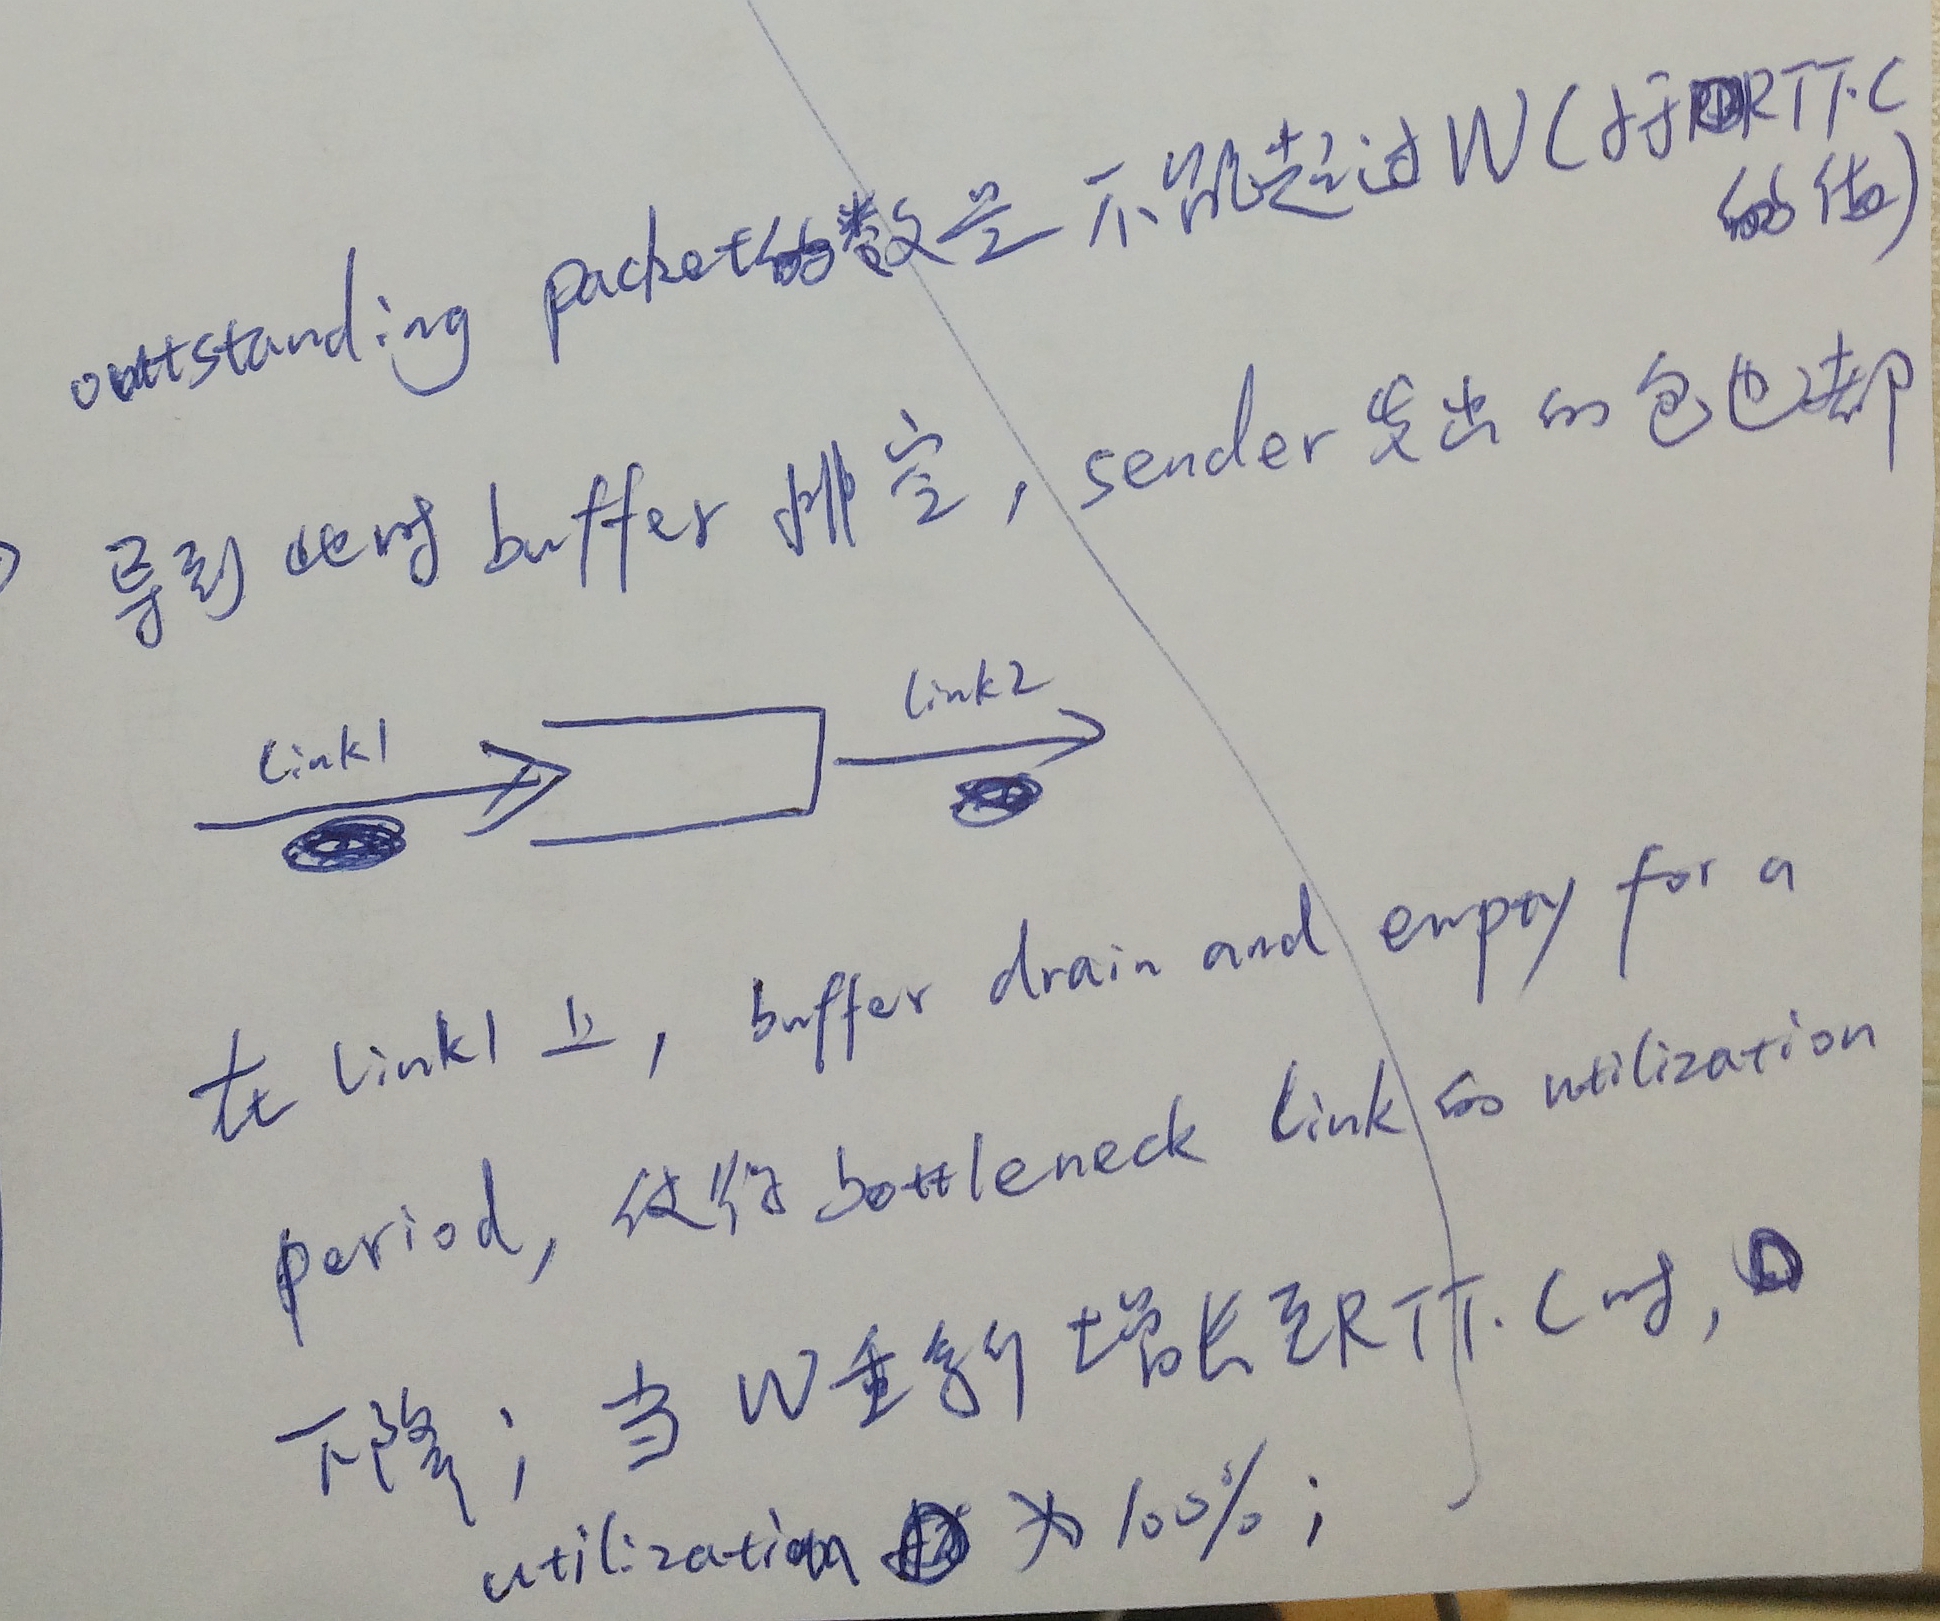 outstanding packet的数量不能超过W(小于RTT·C
的值)
导致此时buffer排空，sender发出的包也都
Link1
Link2
在Link1上，buffer drain and empty for a
period，使得bottleneck link的utilization
下降；当W重新增长至RTT·C时，
utilization为100%；